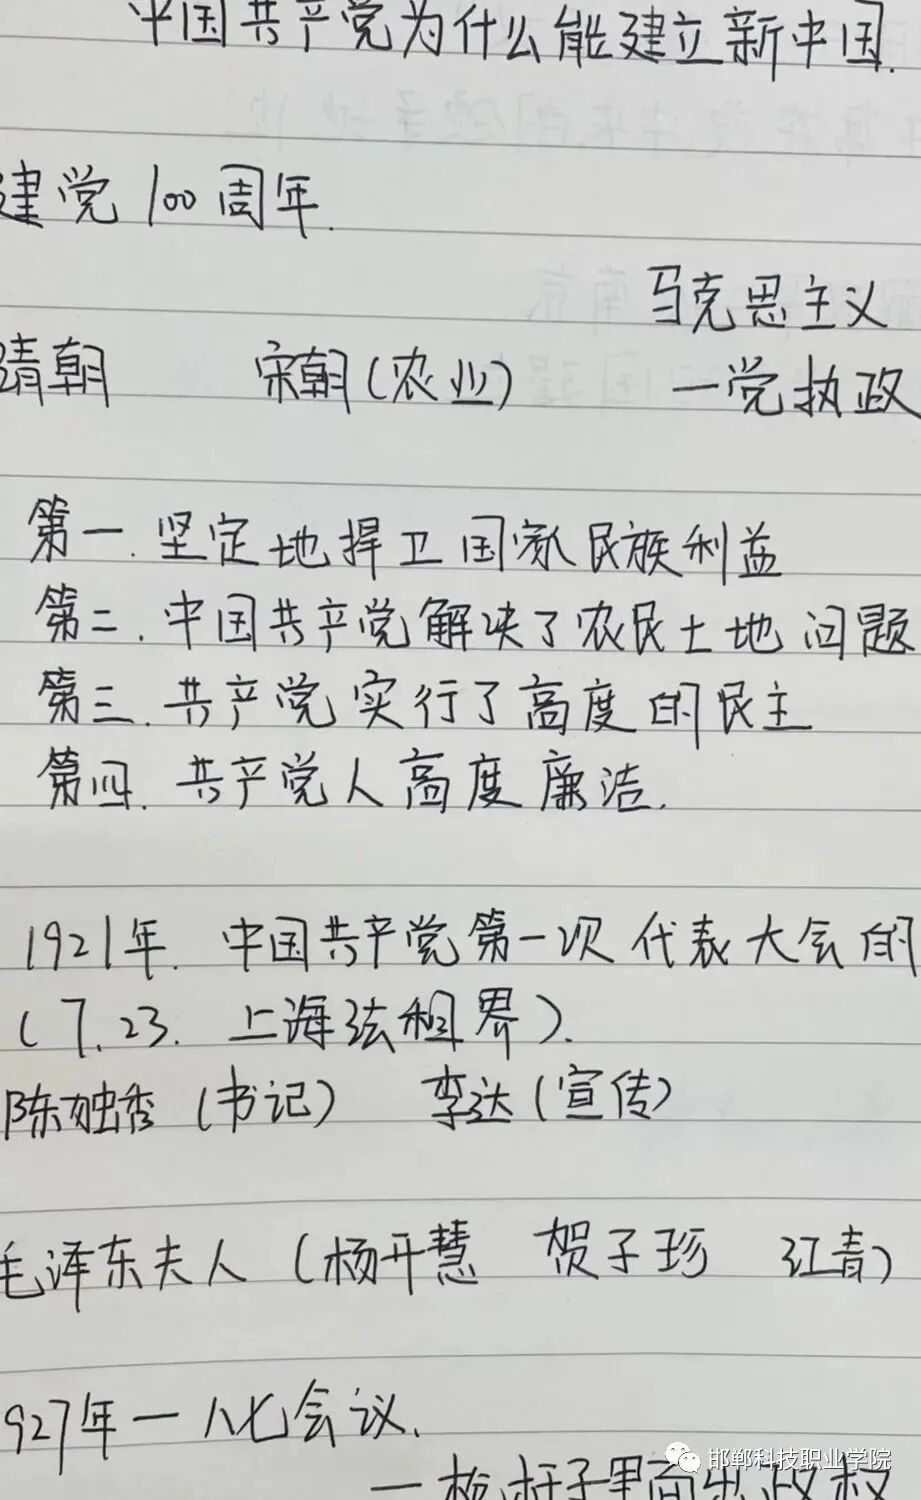 中国共产党为什么能建立新中国.
建党100周年.
马克思主义
清朝 宋朝(农业) 一党执政
第一.坚定地捍卫国家民族利益
第二.中国共产党解决了农民土地问题
第三.共产党实行了高度的民主
第四.共产党人高度廉洁.
1921年.中国共产党第一次代表大会的
(7.23.上海法租界).
陈独秀(书记) 李达(宣传)
毛泽东夫人(杨开慧 贺子珍 江青)
927年一八七会议.
一枪杆子里面出政权
邯郸科技职业学院